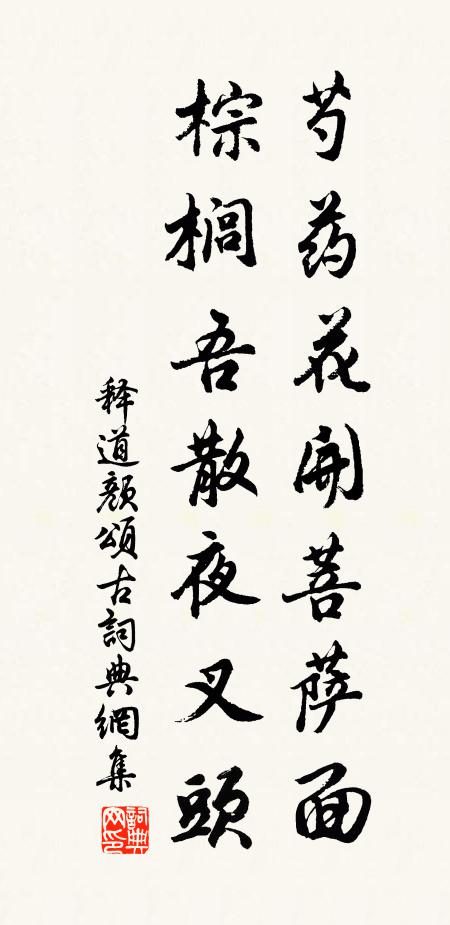 芍药花开菩萨面
棕榈吾散夜叉頭
释道颜頌古詞典網集
詞典網印